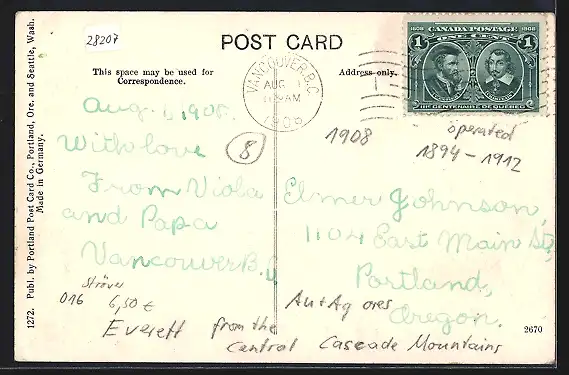 28207
POST CARD
This space may be used for
Correspondence.
Address only.
VANCOUVER, B.C.
AUG 1
AM
1908
1608 CANADA POSTAGE 1908
1 ONE CENT 1
IIIE CENTENAIRE DE QUÉBEC
Aug. 1, 1908.
With love
From Viola
and Papa
Vancouver B.C.
8
1908
operated
1894-1912
Elmer Johnson,
1104 East Main St,
Portland,
Oregon.
Ströver
016 6,50 €
Au + Ag ores
Everett from the
Central Cascade Mountains
1272. Publ. by Portland Post Card Co., Portland, Ore. and Seattle, Wash.
Made in Germany.
2670